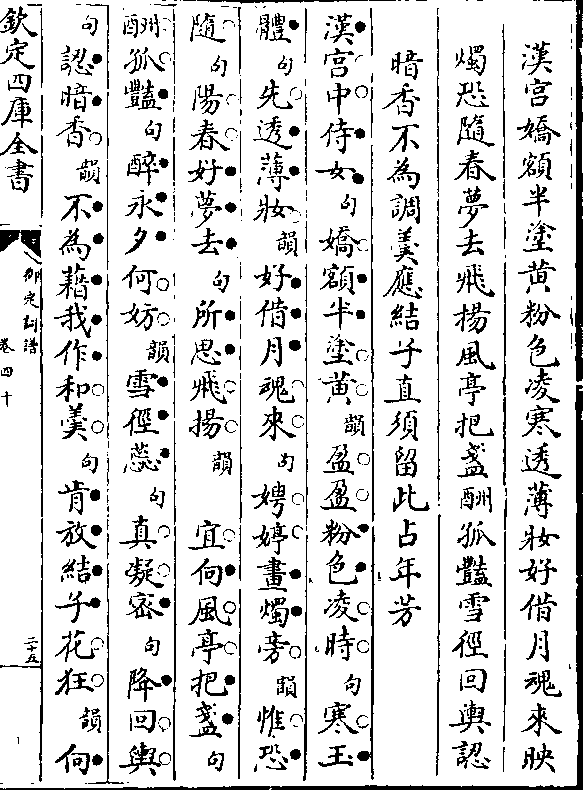 漢宮嬌額半塗黃粉色凌寒透薄妝好借月魂來映
燭恐隨春夢去飛揚風亭把盞酬孤豔雪徑回輿認
暗香不為調羹應結子直須留此占年芳
漢宮中侍女句嬌額半塗黃韻盈盈粉色凌時句寒玉
體句先透薄妝韻好借月魂來句娉婷畫燭旁韻惟恐
隨句陽春好夢去句所思飛揚韻 宜向風亭把盞句
酬孤豔句醉永夕何妨韻雪徑蕊句真凝密句降回輿
句認暗香韻不為藉我作和羹句肯放結子花狂韻向
欽定四庫全書
御定詞譜
卷四十
二十五